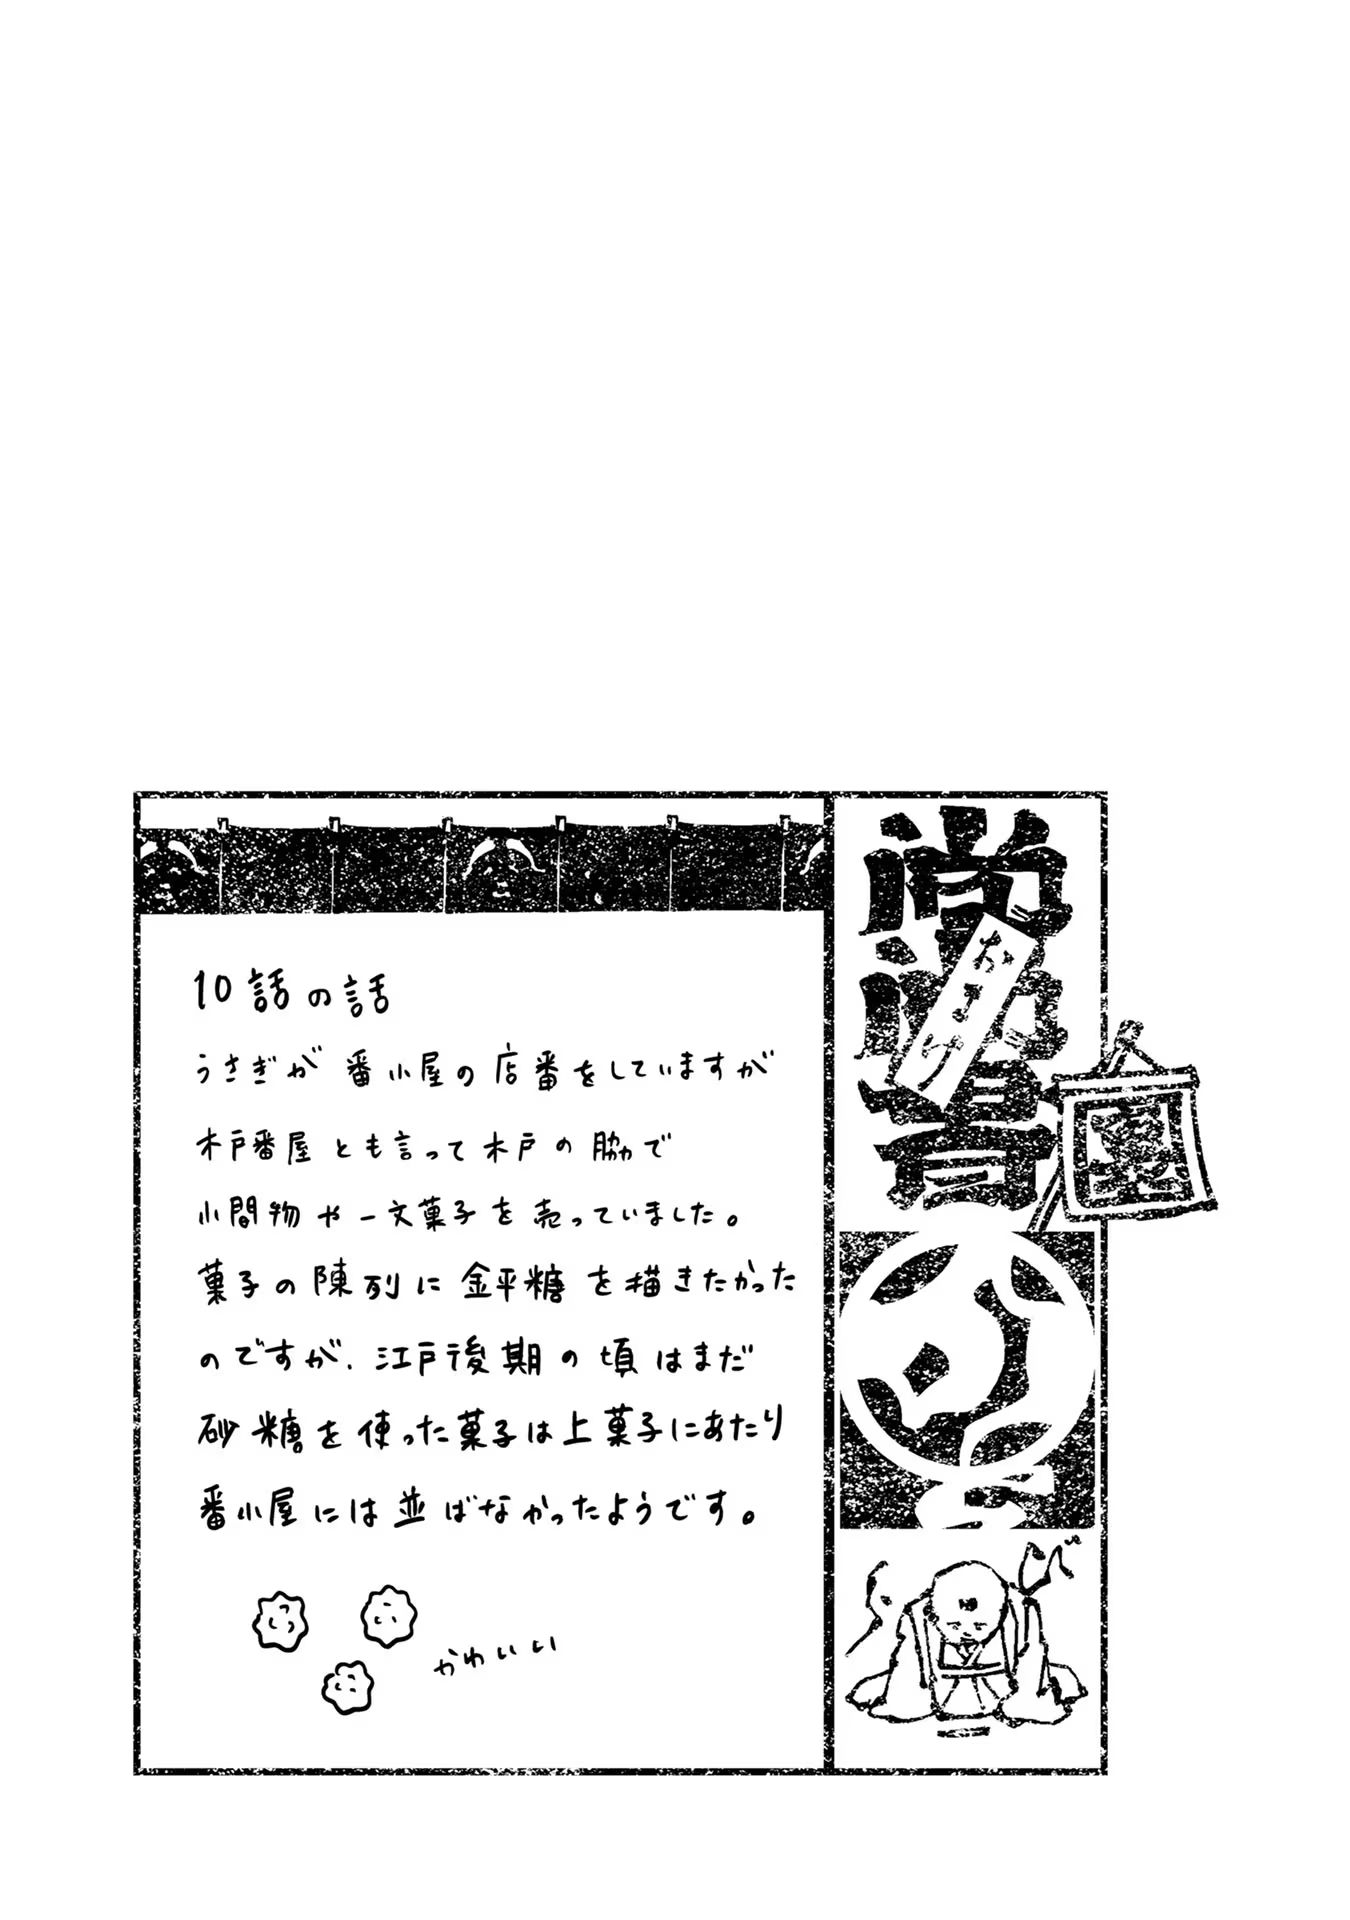 おまけ
10話の話
うさぎが番小屋の店番をしていますが
木戸番屋とも言って木戸の脇で
小間物や一文菓子を売っていました。
菓子の陳列に金平糖を描きたかった
のですが、江戸後期の頃はまだ
砂糖を使った菓子は上菓子にあたり
番小屋には並ばなかったようです。
かわいい